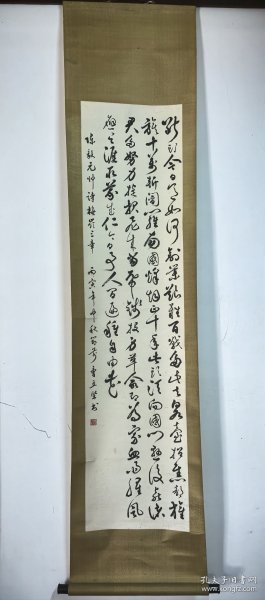 断头今日意如何创业艰难百战多此去泉台招旧部旌
旗十万斩阎罗南国烽烟正十年此头须向国门悬后死诸
君多努力捷报飞来当纸钱投身革命即为家血雨腥风
应有涯取义成仁今日事人间遍种自由花
陈毅元帅诗梅岭三章 丙寅年中秋 书
孔夫子旧书网